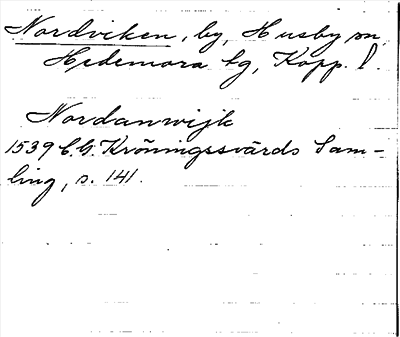 Nordviken, by, Husby sn,
Hedemora tg, Kopp. l.
Nordanwijk
1539 C.G. Kröningssvärds Sam-
ling, s. 141.